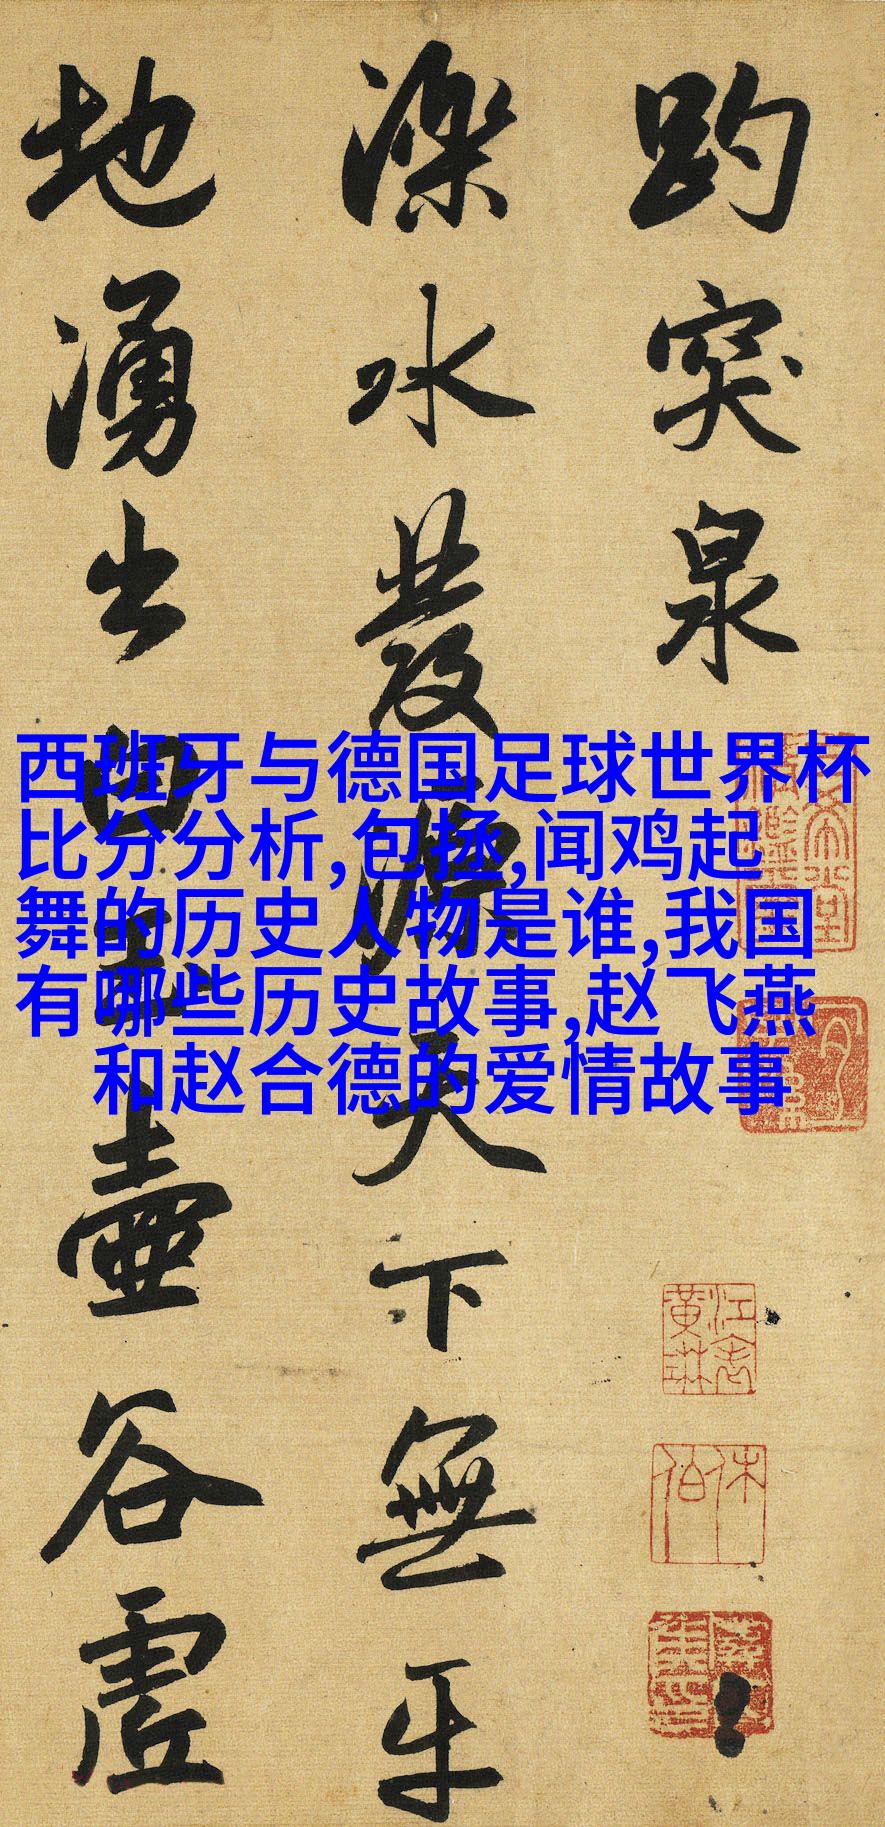 趵突泉
濼水發源天下無
平地湧出白玉壺
谷虛
西班牙与德国足球世界杯
比分分析,包拯,闻鸡起
舞的历史人物是谁,我国
有哪些历史故事,赵飞燕
和赵合德的爱情故事